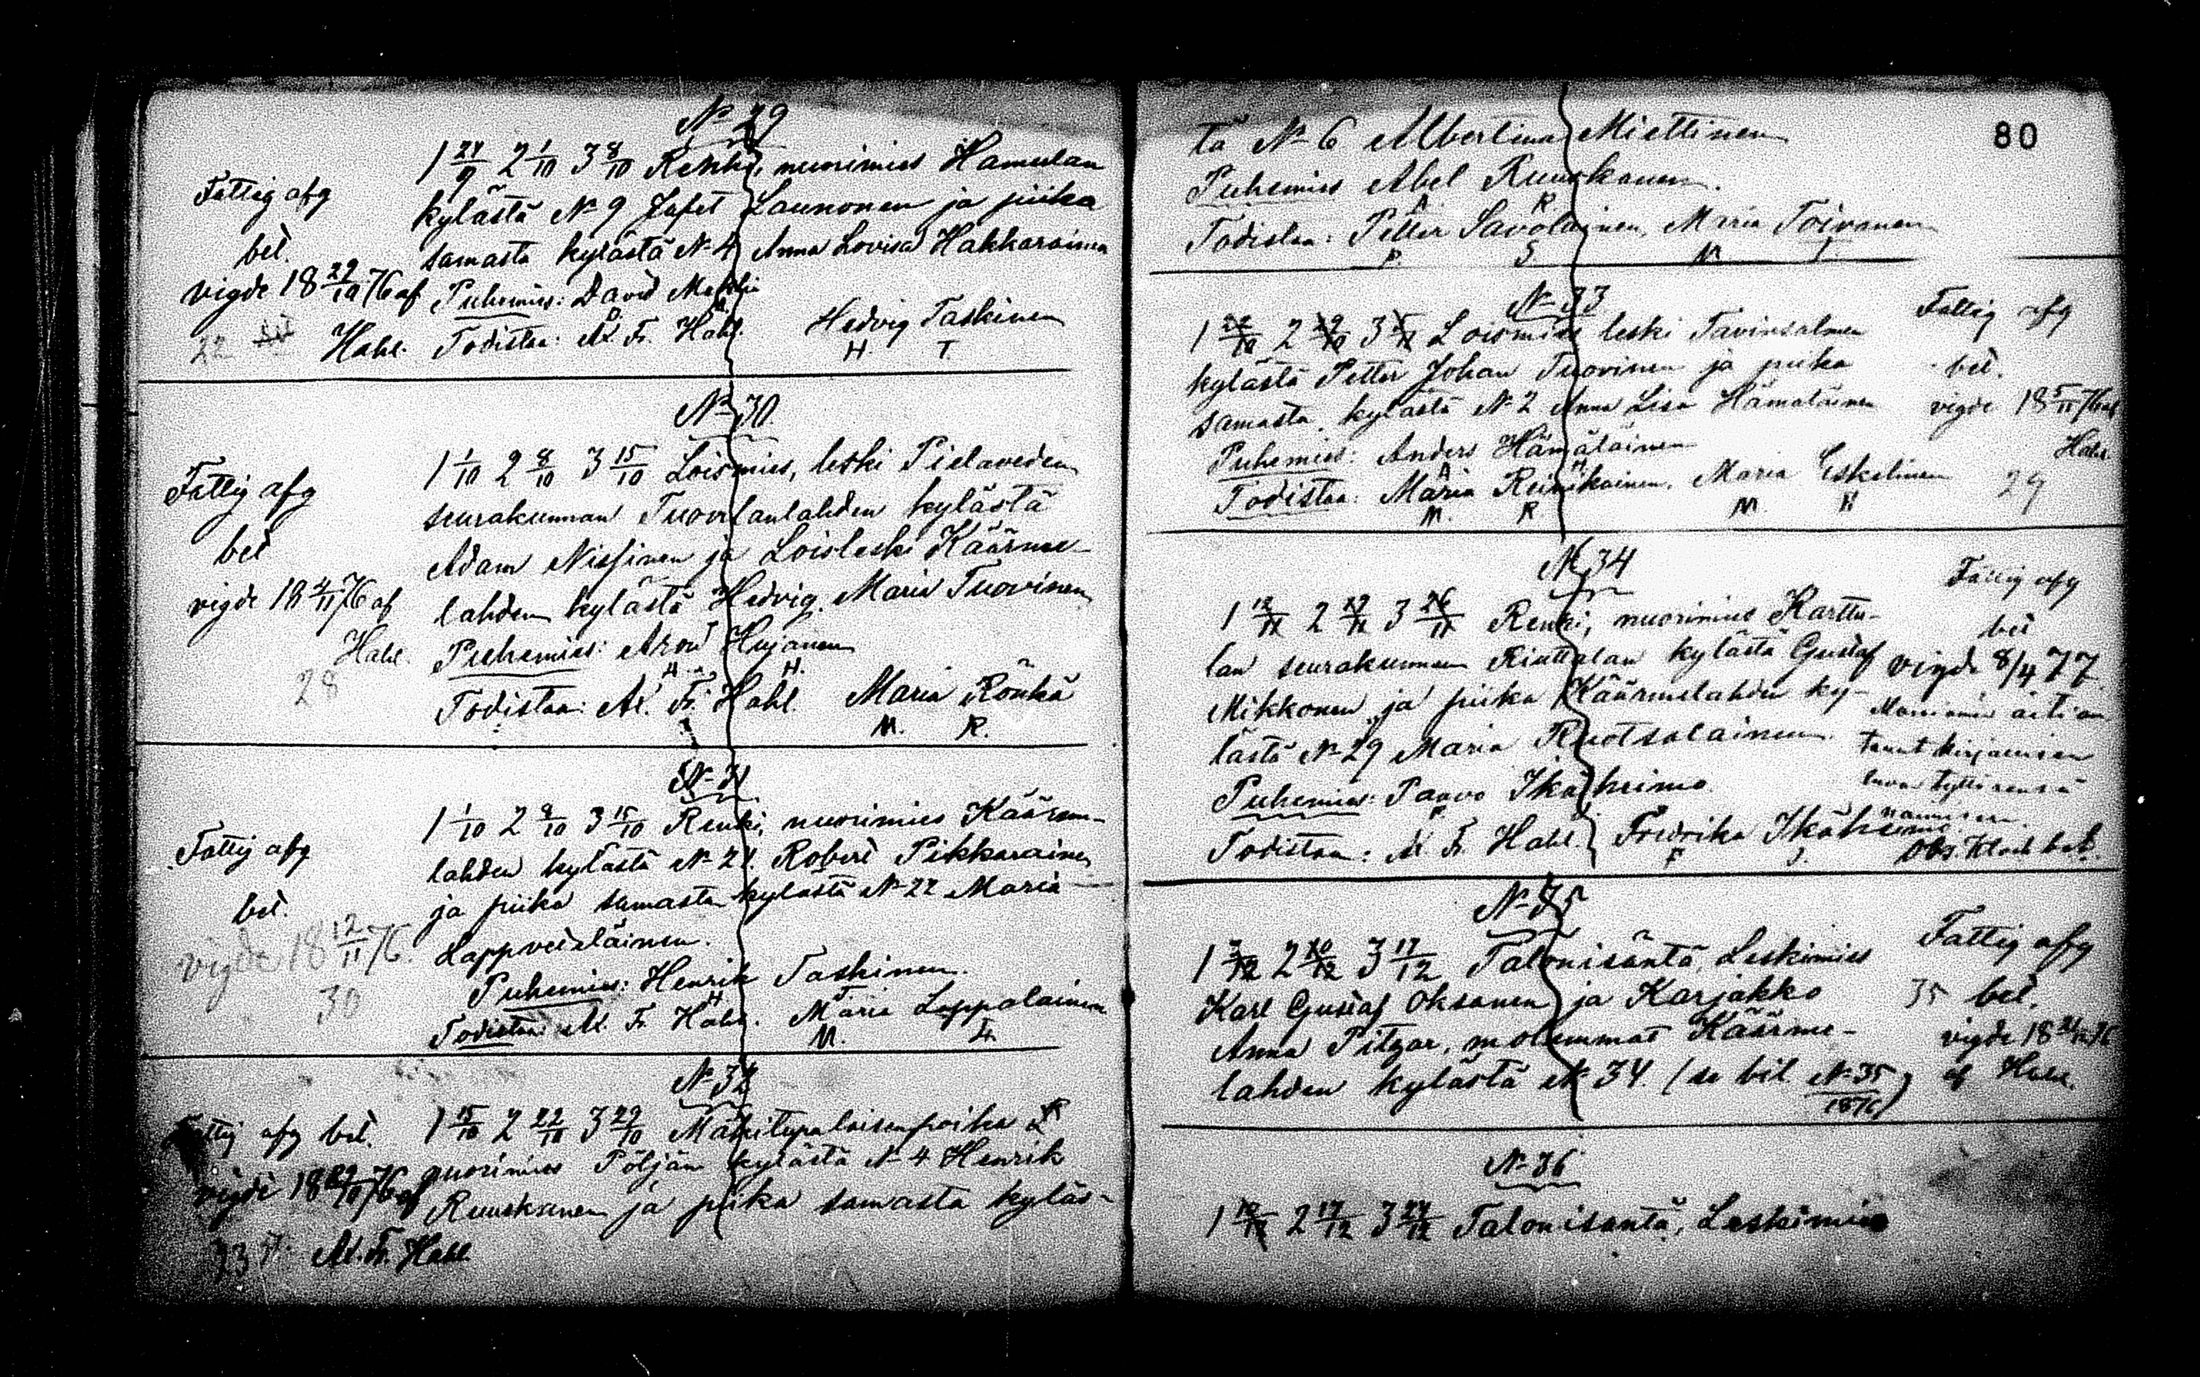 № 29
1 24/9 2 1/10 3 8/10 Renki, nuorimies Hamulan
kylästä № 9 Jafet Launonen ja piika
samasta kylästä № 4 Anna Lovisa Hakkarainen
Puhemies: David
Todistaa: Al. Fr. Hahl. Hedvig Taskinen
D. M. H. T
Fattig afg
bet.
vigde 18 29/10 76 af
Hahl.
22
№ 30.
1 1/10 2 8/10 3 15/10 Loismies, leski Pielaveden
seurakunnan Tuovilanlahden kylästä
Adam Nissinen ja Loisleski Käärme-
lahden kylästä Hedvig Maria Tuovinen
Puhemies: Aron Hujanen
A. H.
Todistaa: Al. Fr. Hahl. Maria Rönkä
M. R.
Fattig afg
bet
vigde 18 4/11 76 af
Hahl.
28
№ 31
1 1/10 2 8/10 3 15/10 Renki, nuorimies Käärme-
lahden kylästä № 21 Robert Pikkarainen
ja piika samasta kylästä № 22 Maria
Lappveteläinen.
Puhemies: Henrik Taskinen.
H T
Todistaa: Al. Fr. Hahl. Maria Lappalainen
M. L.
Fattig afg
bet.
vigde 18 12/11 76.
30
№ 32
1 15/10 2 22/10 3 29/10 Mäkitupalaisenpoika
nuorimies Pöljän kylästä № 4 Henrik
Ruuskanen ja piika samasta kyläs-
Fattig afg bet.
vigde 18 29/10 76 af
23 Al. Fr. Hahl
80
tä № 6 Albertina Miettinen
Puhemies Abel Ruuskanen.
A R
Todistaa: Petter Savolainen, Maria Toivanen
P. S M T.
№ 33
1 22/10 2 29/10 3 5/11 Loismies leski Tavinsalmen
kylästä Petter Johan Tuovinen ja piika
samasta kylästä № 2 Anna Lisa Hämäläinen
Puhemies: Anders Hämäläinen
A H
Todistaa: Maria Reinikainen, Maria Eskelinen
M. R M. E
Fattig afg
bet.
vigde 18 5/11 76 af
Hahl
29
№ 34
1 12/11 2 19/11 3 26/11 Renki, nuorimies Karttu-
lan seurakunnan Riuttalan kylästä Gustaf
Mikkonen ja piika Käärmelahden ky-
lästä № 29 Maria Ruotsalainen.
Puhemies: Paavo Ikäheimo.
P
Todistaa: Al. Fr. Hahl. Fredrika Ikäheimo
F I.
Fattig afg
bet
vigde 8/4 77.
äiti on
kirjallisen
luvan tyttärensä
naimiseen.
№ 35
1 3/12 2 10/12 3 17/12 Talonisäntä, Leskimies
Karl Gustaf Oksanen ja Karjakko
Anna Pitzar, molemmat Käärme-
lahden kylästä № 34. (se bil № 35/1876)
Fattig afg
35 bet.
vigde 18 26/12 76
af Hahl.
№ 36
1 10/12 2 17/12 3 24/12 Talonisäntä, Leskimies